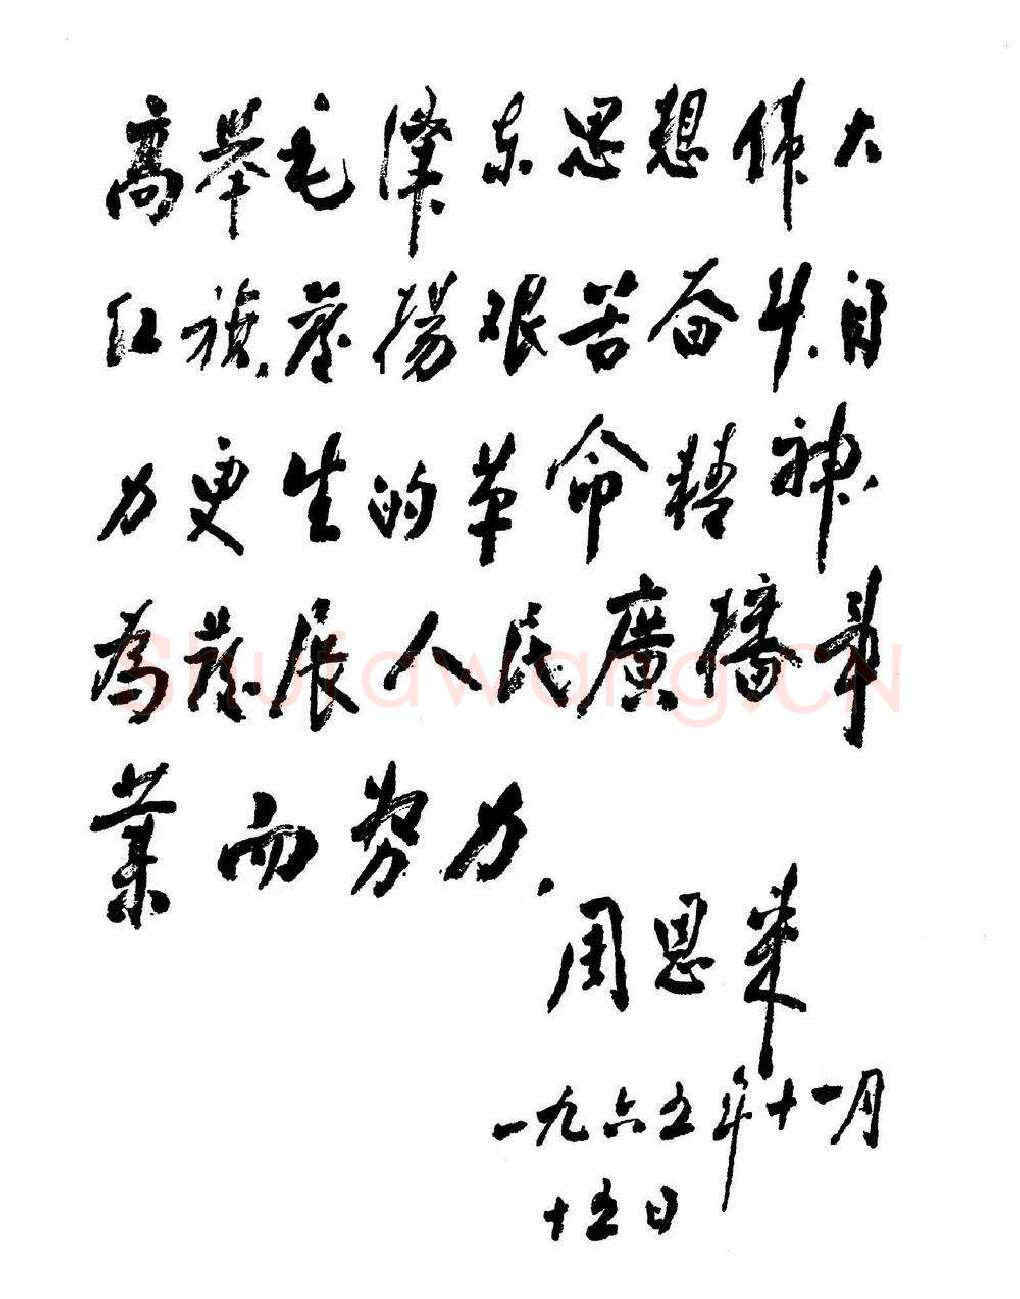 高举毛泽东思想伟大
红旗,發揚艰苦奋斗.自
力更生的革命精神.
為發展人民廣播事
業而努力.
周恩来
一九六五年十一月
十五日
Shufawang.CN